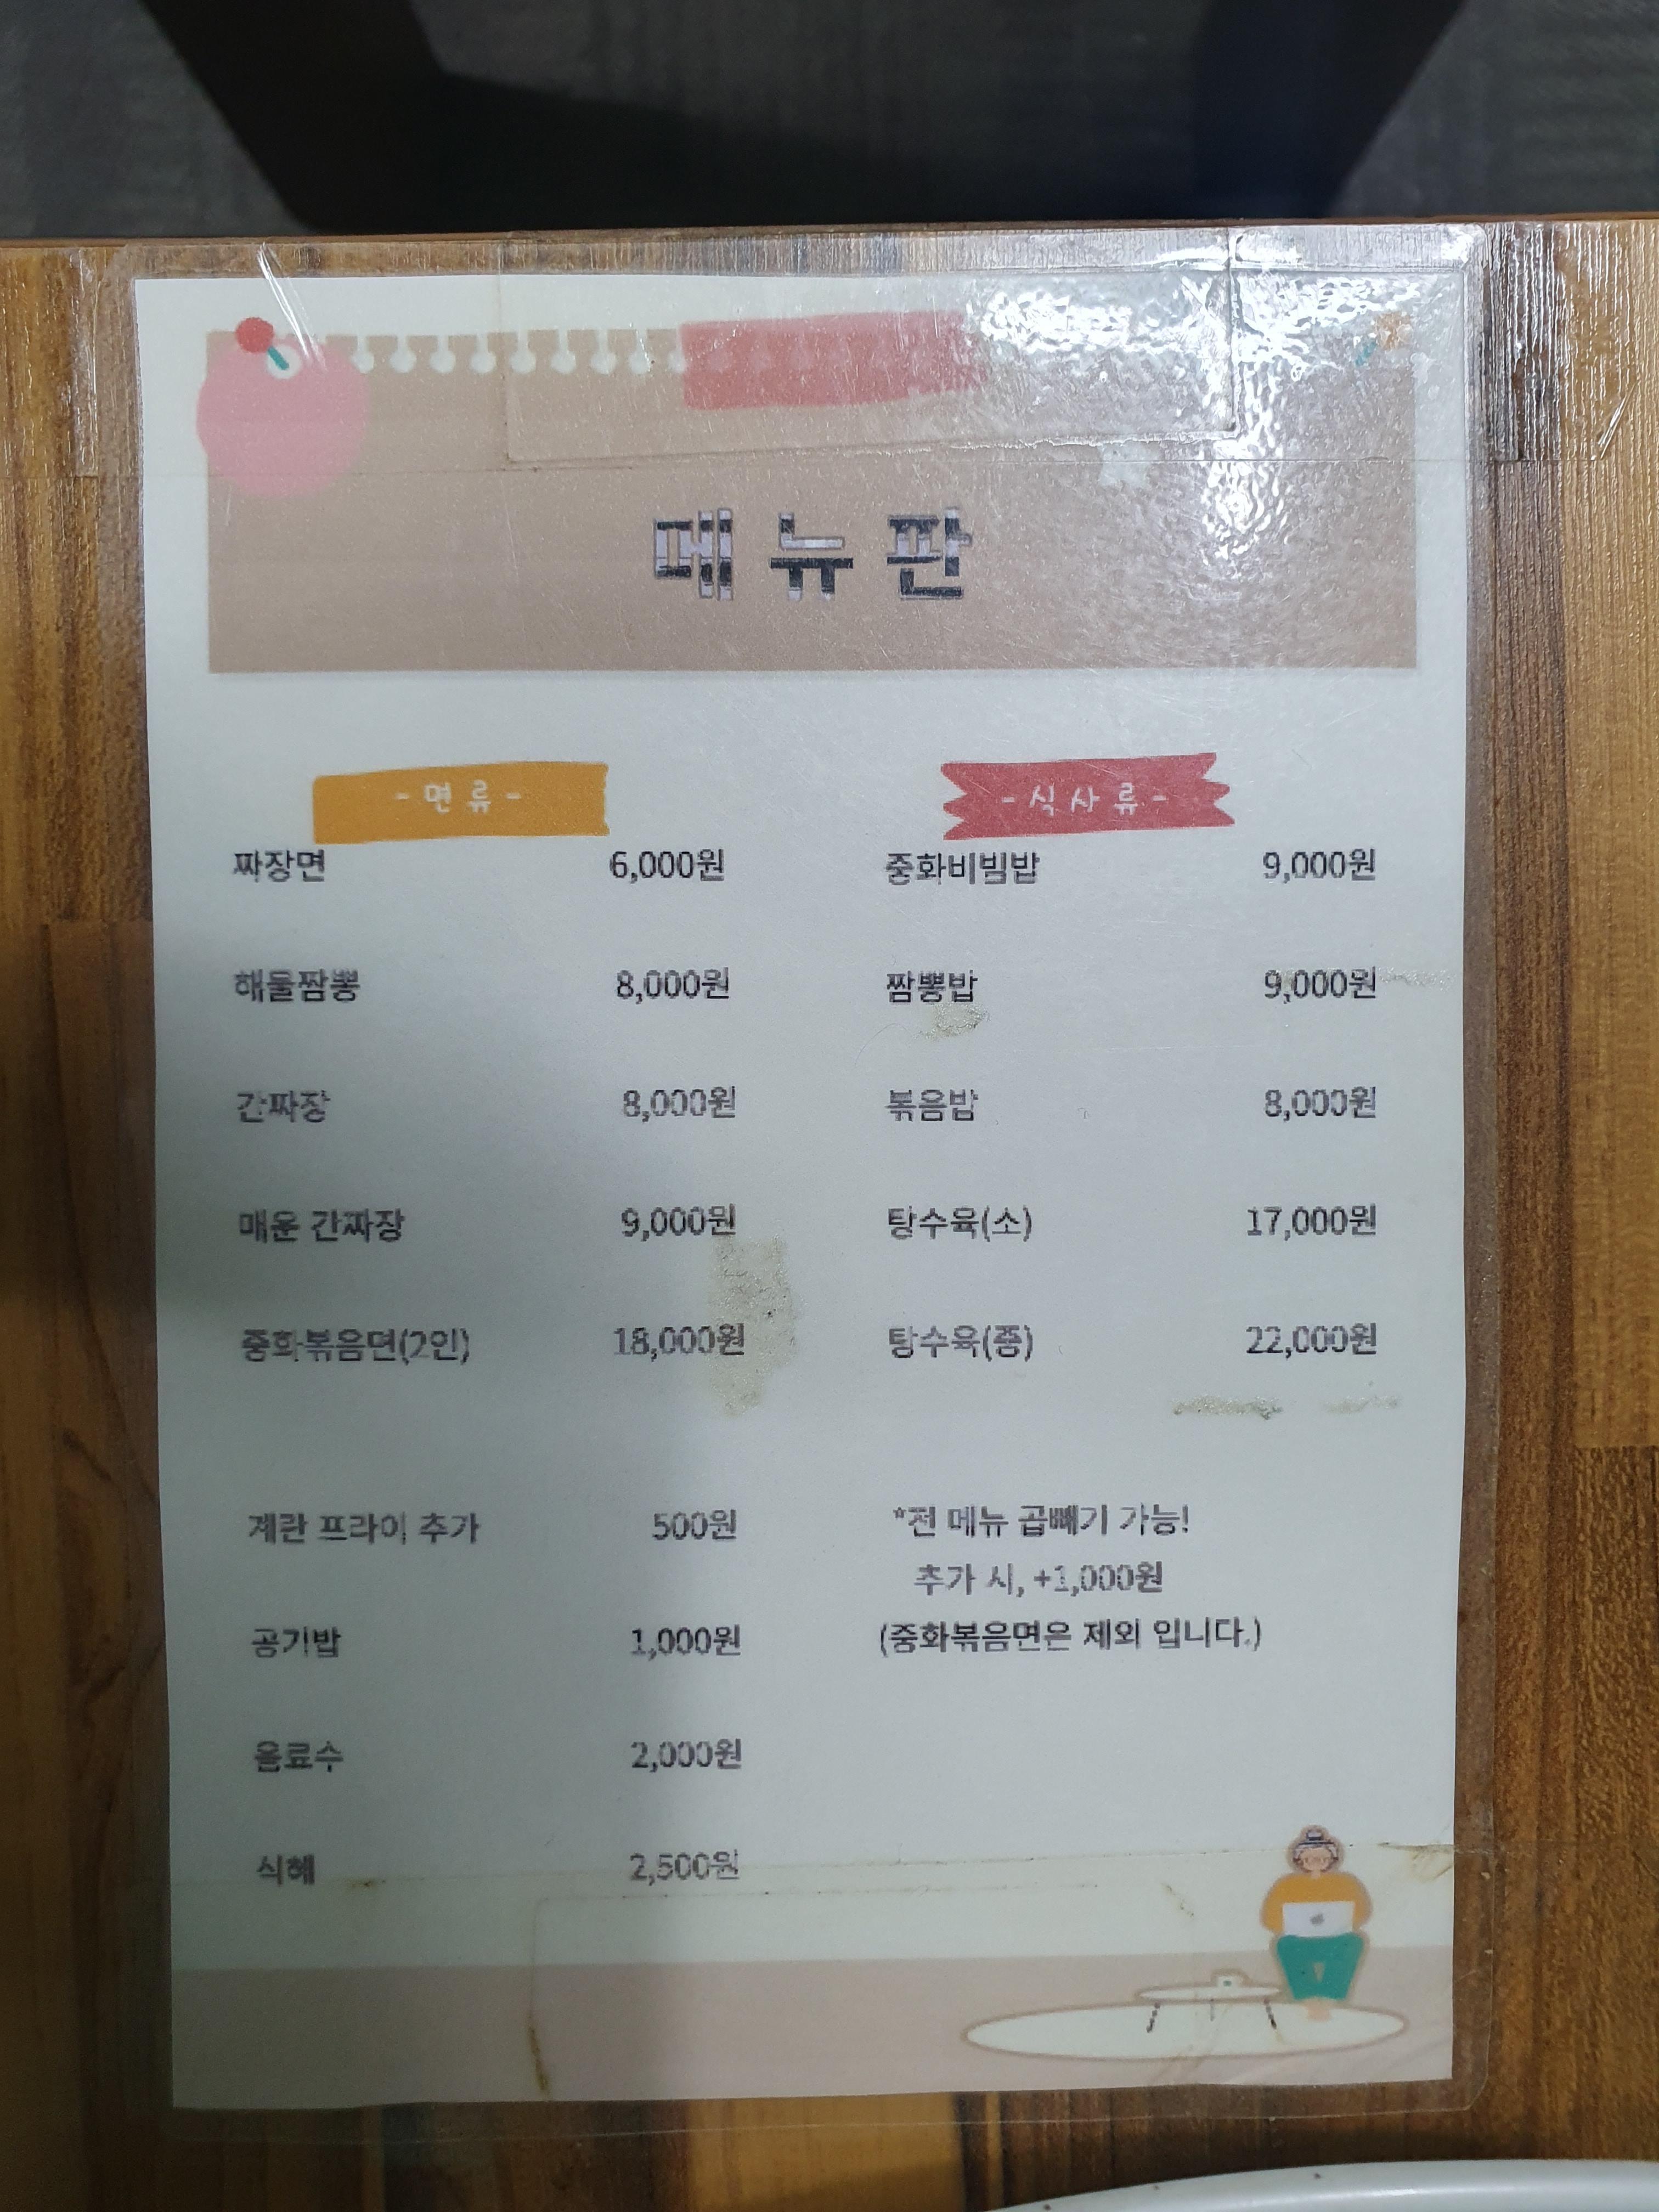 메뉴판
- 면류 -
짜장면 6,000원
해물짬뽕 8,000원
간짜장 8,000원
매운 간짜장 9,000원
중화볶음면(2인) 18,000원
계란 프라이 추가 500원
공기밥 1,000원
음료수 2,000원
식혜 2,500원
- 식사류 -
중화비빔밥 9,000원
짬뽕밥 9,000원
볶음밥 8,000원
탕수육(소) 17,000원
탕수육(중) 22,000원
*전 메뉴 곱빼기 가능!
추가 시, +1,000원
(중화볶음면은 제외 입니다.)